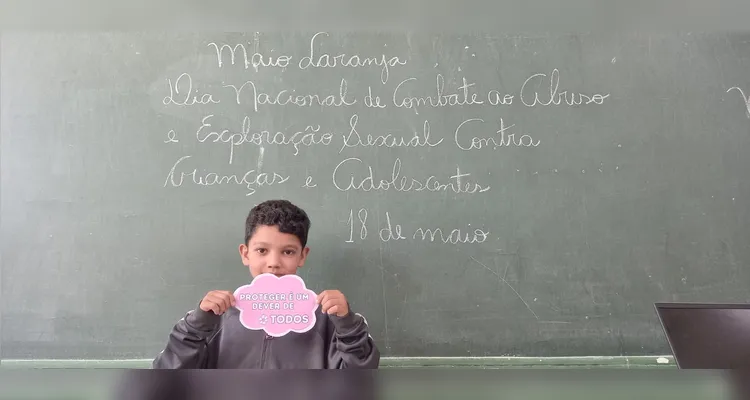 Maio Laranja
Dia Nacional de Combate ao Abuso
e Exploração Sexual Contra
Crianças e Adolescentes
18 de maio
PROTEGER É UM
DEVER DE
TODOS